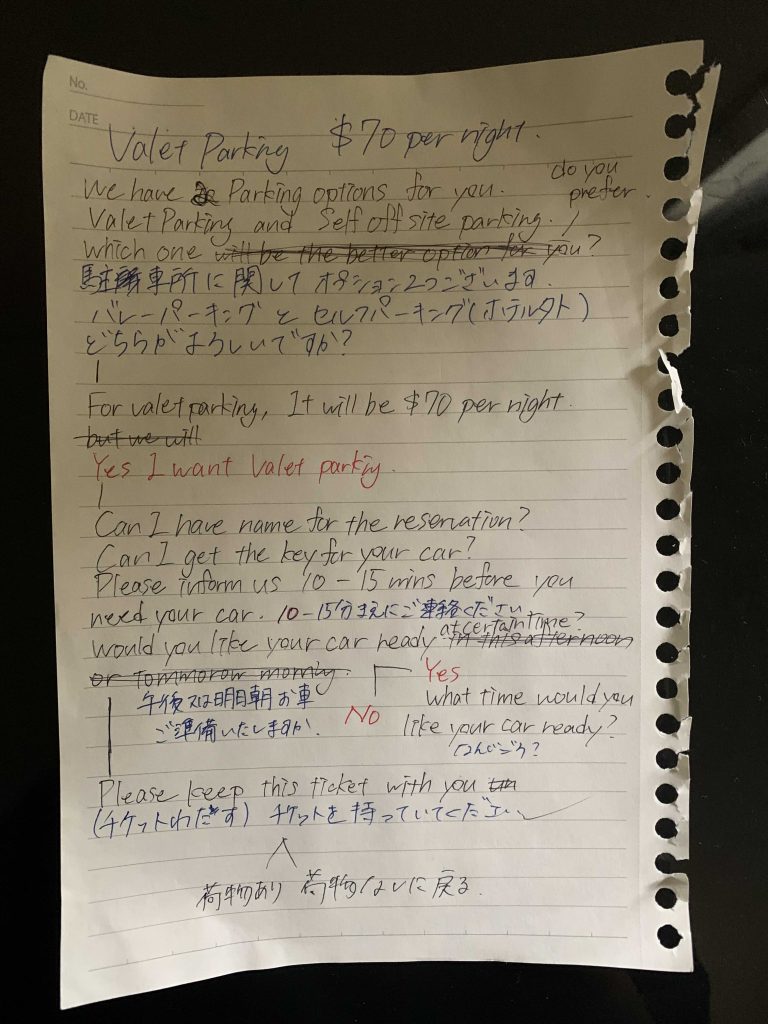 No.
DATE
Valet Parking $70 per night.
We have Parking options for you. do you
prefer.
Valet Parking and Self off site parking.
which one will be the better option for you?
駐車所に関して オプション2つございます.
バレーパーキング と セルフパーキング(ホテル外)
どちらがよろしいですか?
For valet parking, It will be $70 per night.
but we will
Yes I want Valet parking.
Can I have name for the reservation?
Can I get the key for your car?
Please inform us 10-15 mins before you
need your car. 10-15分まえにご連絡ください
at certain time?
would you like your car ready in this afternoon
or tommorow morning.
Yes
午後又は明日朝お車
what time would you
No
ご準備いたしますか.
like your car ready?
なんじごろ?
Please keep this ticket with you
(チケットわたす) チケットを持っていてください
荷物あり 荷物なしに戻る.